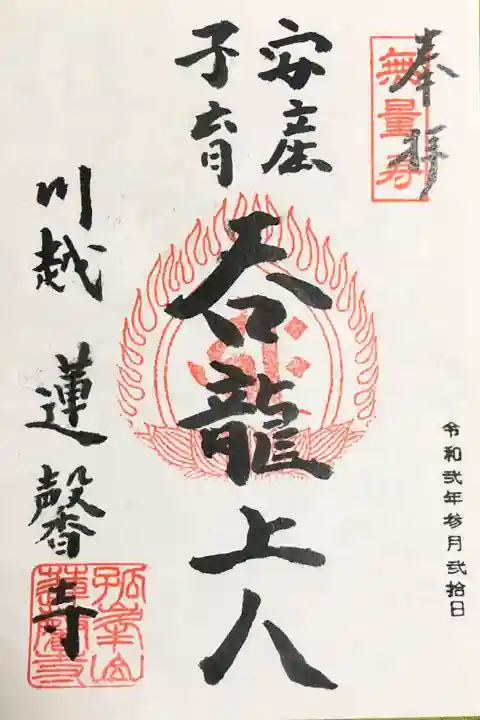 奉拝
無量寿
安産
子育
呑龍上人
川越 蓮馨寺
孤峯山
蓮馨寺
令和弐年参月弐拾日